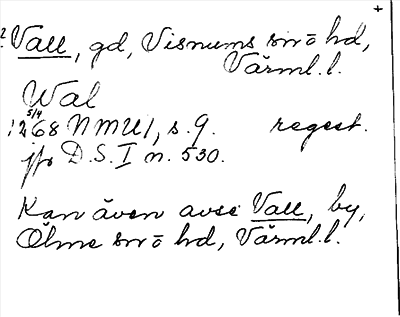 +
Vall, gd, Visnums sn o hd,
Värml.l.
Wal
5/4
1268 NMU 1, s. 9. regest.
jfr D.S. I n. 530.
Kan även avse Vall, by,
Ölme sn o hd, Värml.l.